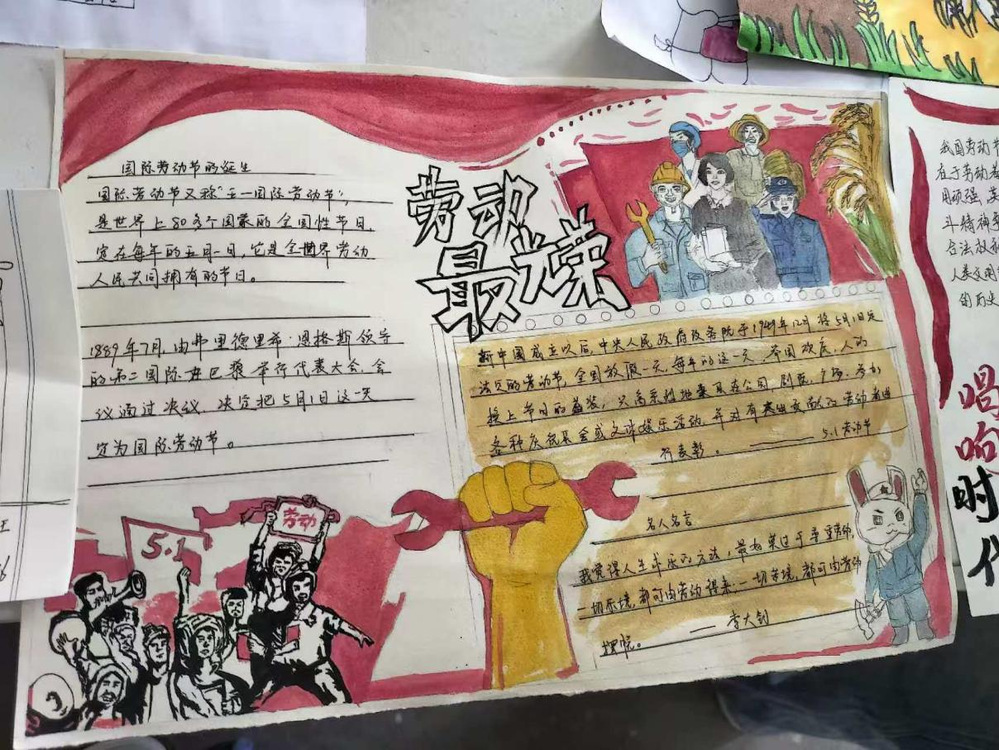 国际劳动节的诞生
国际劳动节又称“五一国际劳动节”,
是世界上80多个国家的全国性节日,
定在每年的五月一日,它是全世界劳动
人民共同拥有的节日。
1889年7月,由弗里德里希·恩格斯领导
的第二国际在巴黎举行代表大会,会
议通过决议,决定把5月1日这一天
定为国际劳动节。
劳动
最光荣
新中国成立以后,中央人民政府政务院于1949年12月将5月1日定
法定的劳动节,全国放假一天,每年的这一天,举国欢庆,人们
换上节日的盛装,兴高采烈地聚集在公园、剧院、广场,参加
各种庆祝集会或文体娱乐活动,并对有突出贡献的劳动者进
行表彰。 ——5.1劳动节
名人名言
我觉得人生求乐的方法,最好莫过于尊重劳动,
一切乐境,都可由劳动得来,一切苦境,都可由劳动
解脱。 ——李大钊
5.1
劳动
我国劳动节
在于劳动者
斗精神
合法权
人类文明
的历史
唱
响
时
代